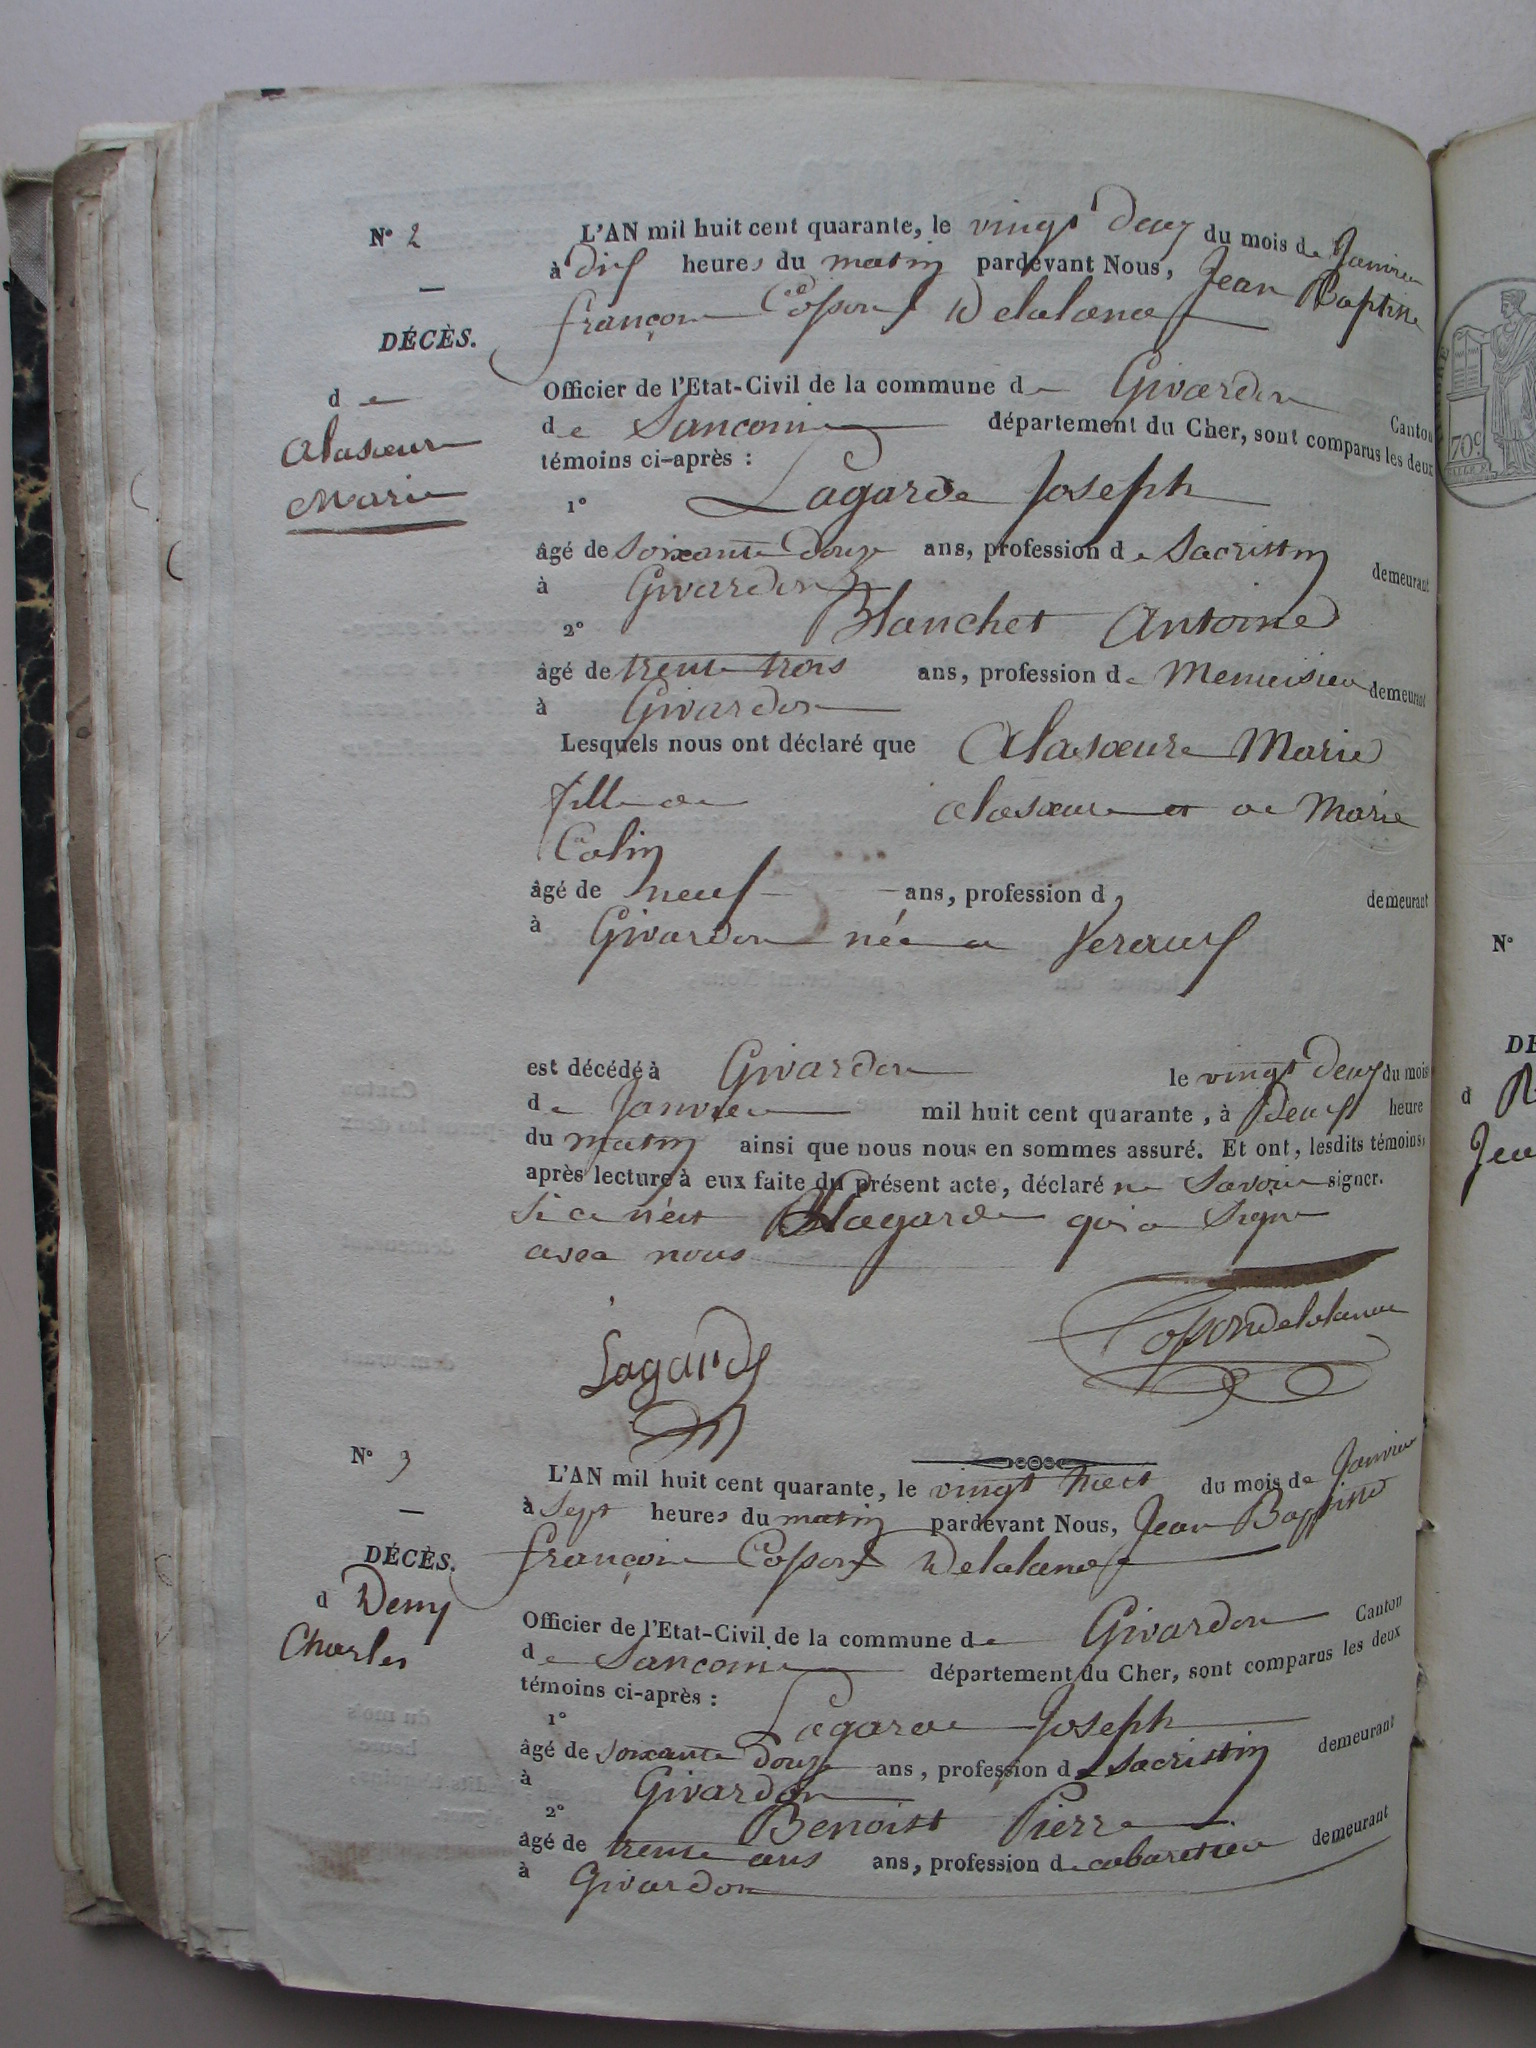 N° 2
L'AN mil huit cent quarante, le vingt deux du mois de Janvier
à dix heures du matin pardevant Nous, Jean Baptiste
françois Cosson Delalande
DÉCÈS.
de
Alasoeur
Marie
Officier de l'Etat-Civil de la commune de Givardon Canton
de Sancoins département du Cher, sont comparus les deux
témoins ci-après :
1° Lagarde Joseph
âgé de soixante douze ans, profession de Sacristin demeurant
à Givardon
2° Blanchet Antoine
âgé de trente trois ans, profession de Menuisier demeurant
à Givardon
Lesquels nous ont déclaré que Alasoeure Marie
fille de alasoeure et de Marie
Colin
âgé de neuf ans, profession d demeurant
à Givardon née a
est décédé à Givardon le vingt deux du mois
de Janvier mil huit cent quarante, à heure
du matin ainsi que nous nous en sommes assuré. Et ont, lesdits témoins,
après lecture à eux faite du présent acte, déclaré ne Savoir signer.
Si ce n'est Lagarde qui a Signé
avec nous
Lagarde
Cossondelalande
N° 3
L'AN mil huit cent quarante, le vingt huit du mois de Janvier
à Sept heures du matin pardevant Nous, Jean Baptiste
françois Cosson Delalande
DÉCÈS.
d Demy
Charles
Officier de l'Etat-Civil de la commune de Givardon Canton
de Sancoins département du Cher, sont comparus les deux
témoins ci-après :
1° Lagarde Joseph
âgé de soixante douze ans, profession de Sacristin demeurant
à Givardon
2° Benoist Pierre
âgé de trente ans ans, profession de cabaretier demeurant
à Givardon
70c
N°
DÉ
d
Jea